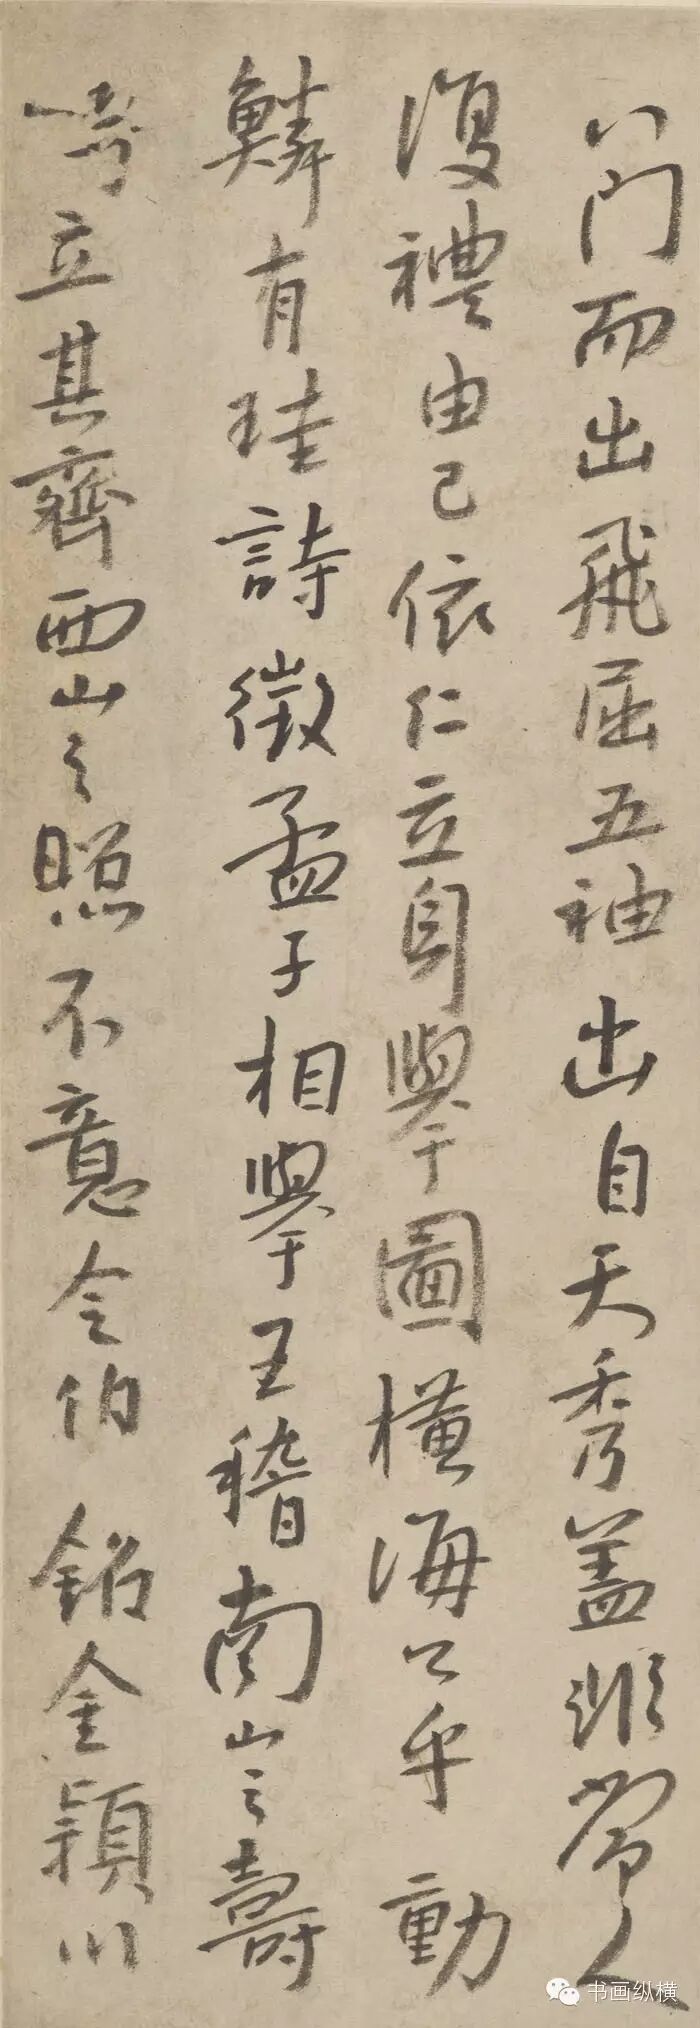 八門而出飛屈五袖出自天秀蓋非常人
復禮由己依仁立身舉圖橫海公乎動
鱗有珪詩徵孟子相舉王稽南山之壽
立其齊西山之照不意令伯銘金穎川
书画纵横